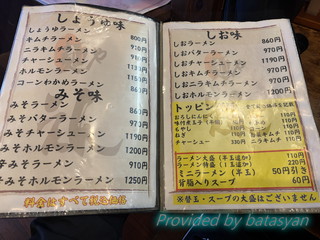 しょうゆ味
しょうゆラーメン 800円
キムチラーメン 910円
ニラキムチラーメン 910円
チャーシューメン 1130円
ホルモンラーメン 1150円
コーンわかめラーメン
みそ味
みそラーメン
みそバターラーメン 970円
みそチャーシューメン 1190円
みそホルモンラーメン 1200円
辛みそラーメン 910円
辛みそホルモンラーメン 1250円
料金はすべて税込価格
しお味
しおラーメン 860円
しおバターラーメン 970円
しおチャーシューメン 1190円
しおキムチラーメン 970円
しおニラキムチラーメン 970円
しおホルモンラーメン 1200円
トッピング
おろしにんにく
味付煮玉子
もやし
ねぎ
チャーシュー 330円
ラーメン大盛(半玉追加) 110円
ラーメン特盛(1玉追加) 220円
ミニラーメン(半玉) 50円引き
背脂入りスープ 60円
※替玉・スープの大盛はございません
Provided by batasyan